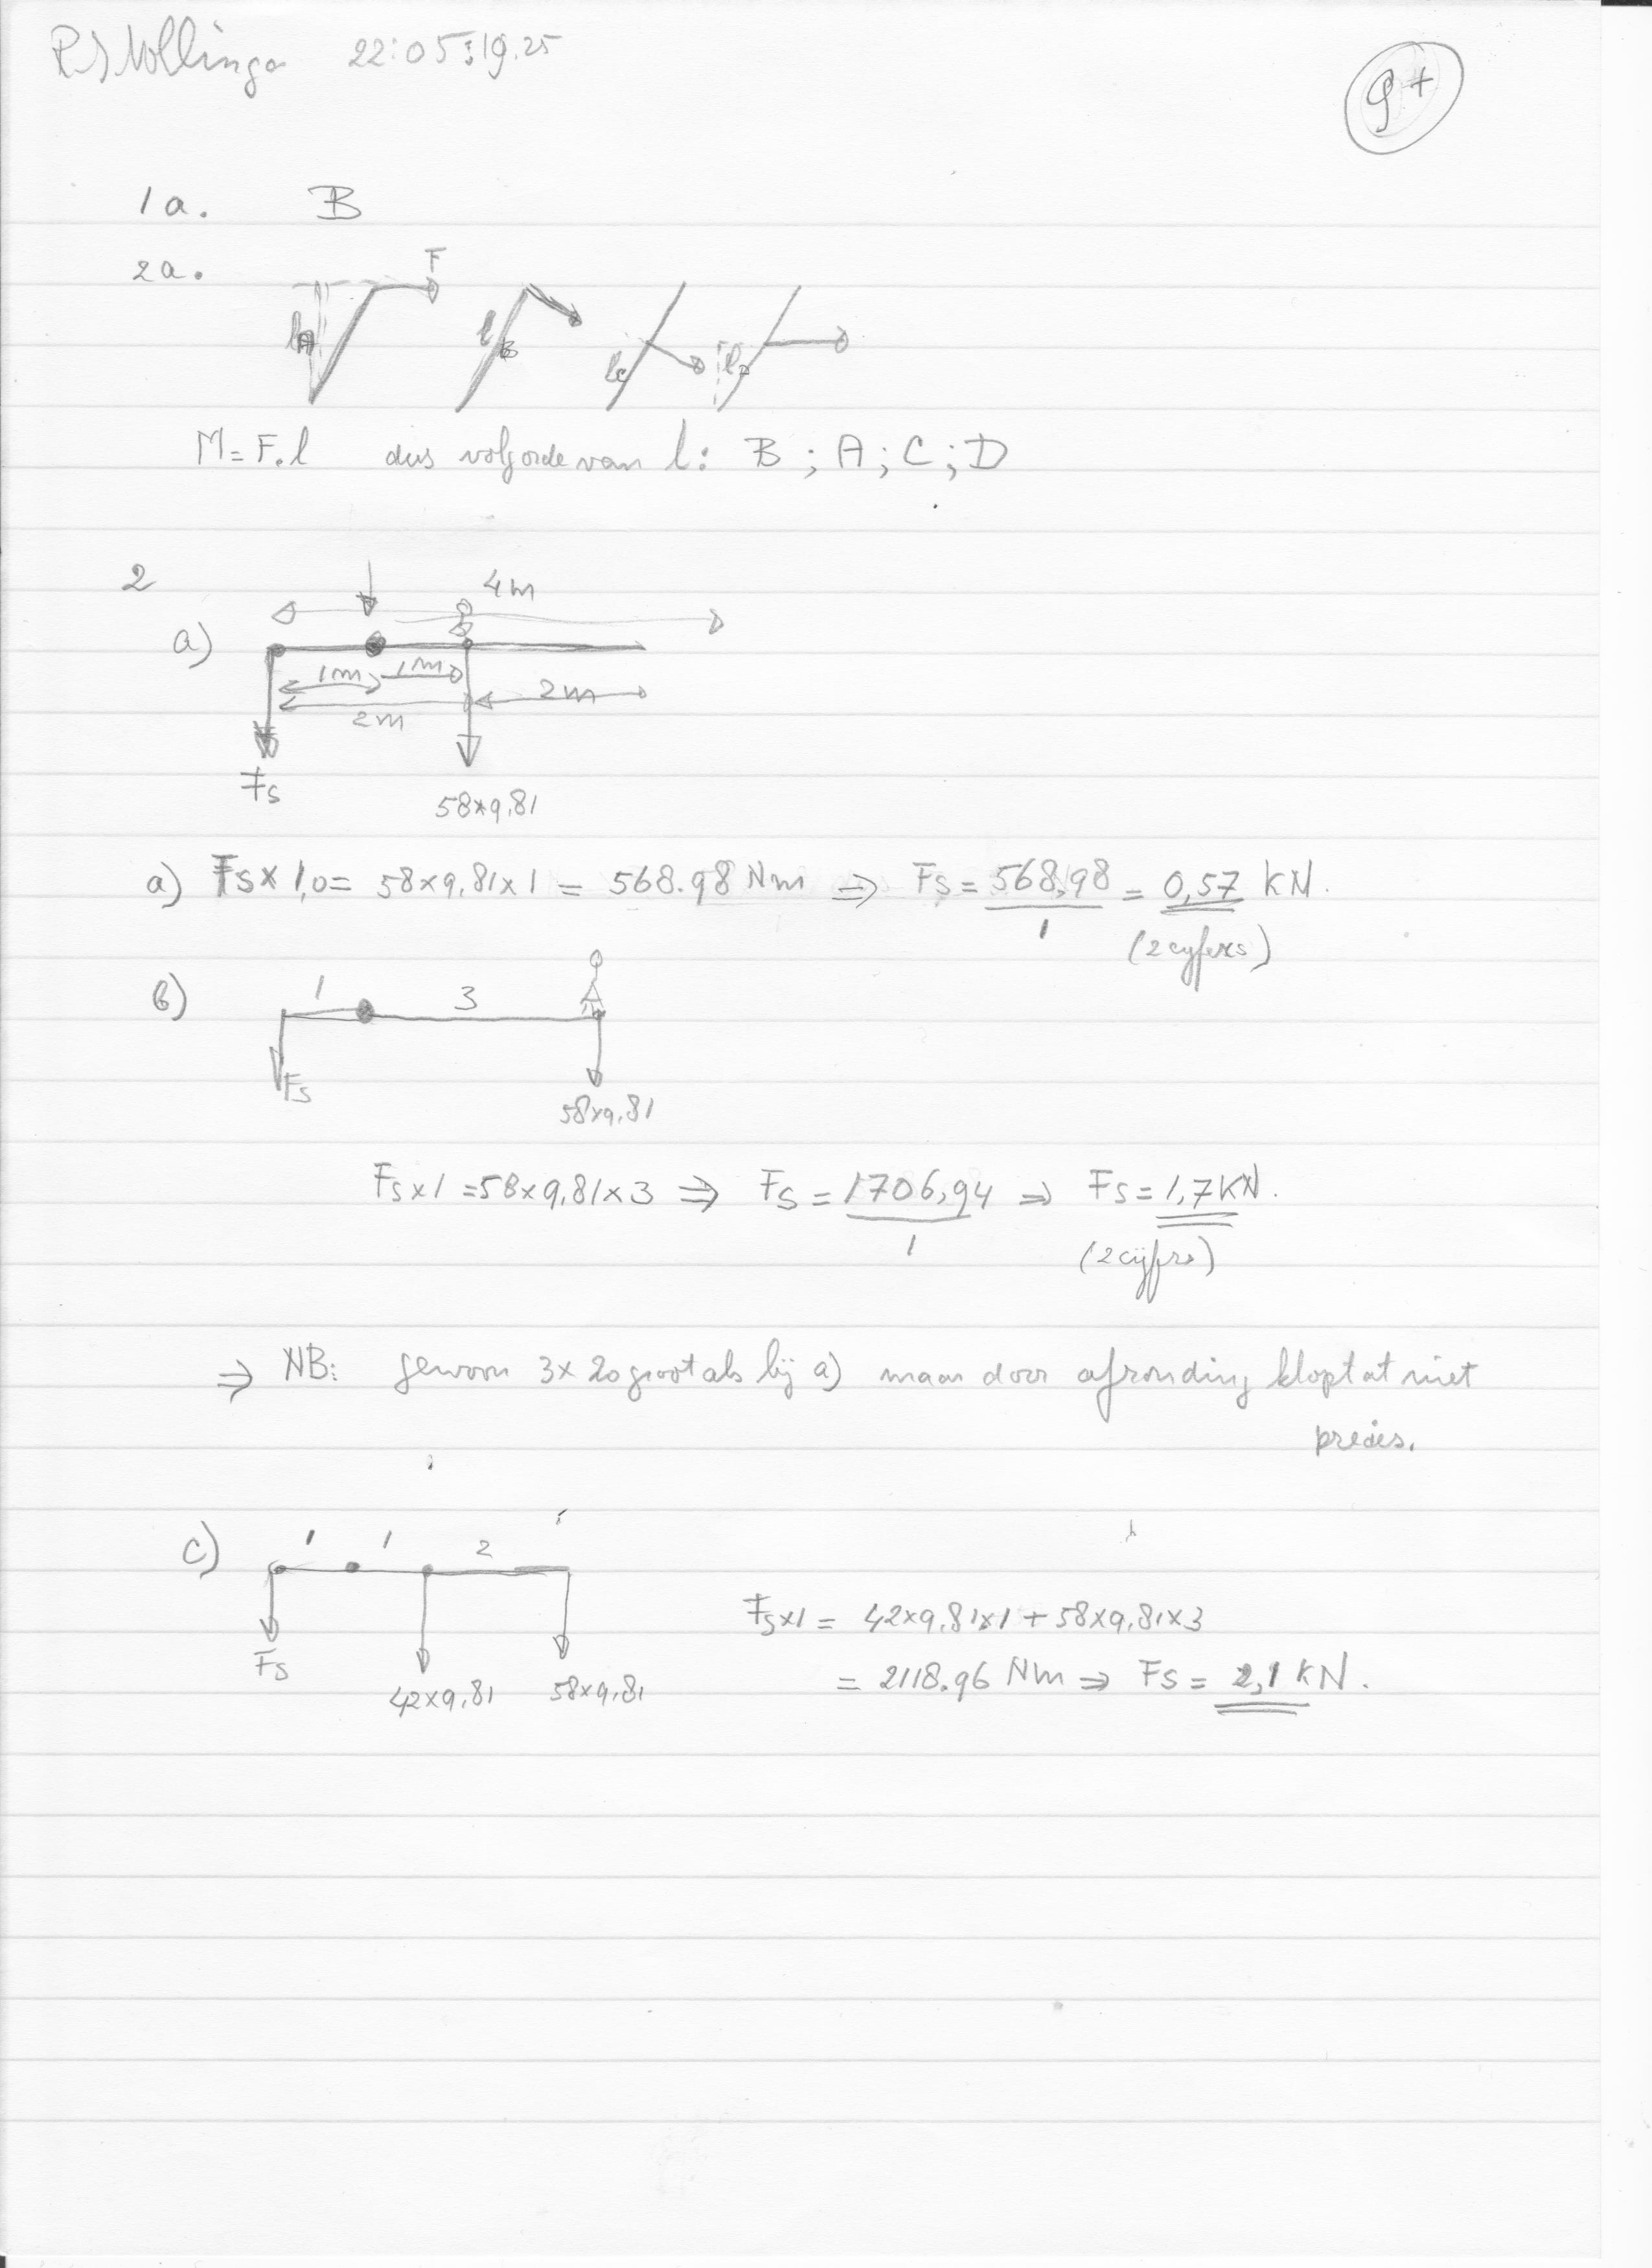 22:05:19.25
9+
1a. B
2a.
F
lA l B lC lD
M=F.l dus volgorde van l: B ; A ; C ; D
2
4m
a)
1m 1m
2m 2m
Fs
58×9,81
a) Fs × 1,0 = 58×9,81×1 = 568.98 Nm ⇒ Fs = 568,98 / 1 = 0,57 kN.
(2 cyfers)
b) 1 3
Fs
58×9,81
Fs×1 = 58×9,81×3 ⇒ Fs = 1706,94 / 1 ⇒ Fs = 1,7 kN.
(2 cijfrs)
⇒ NB: gewoon 3× zo groot als bij a) maar door afronding klopt at niet
precies.
c) 1 1 2
Fs
42×9,81 58×9,81
Fs×1 = 42×9,81×1 + 58×9,81×3
= 2118.96 Nm ⇒ Fs = 2,1 kN.